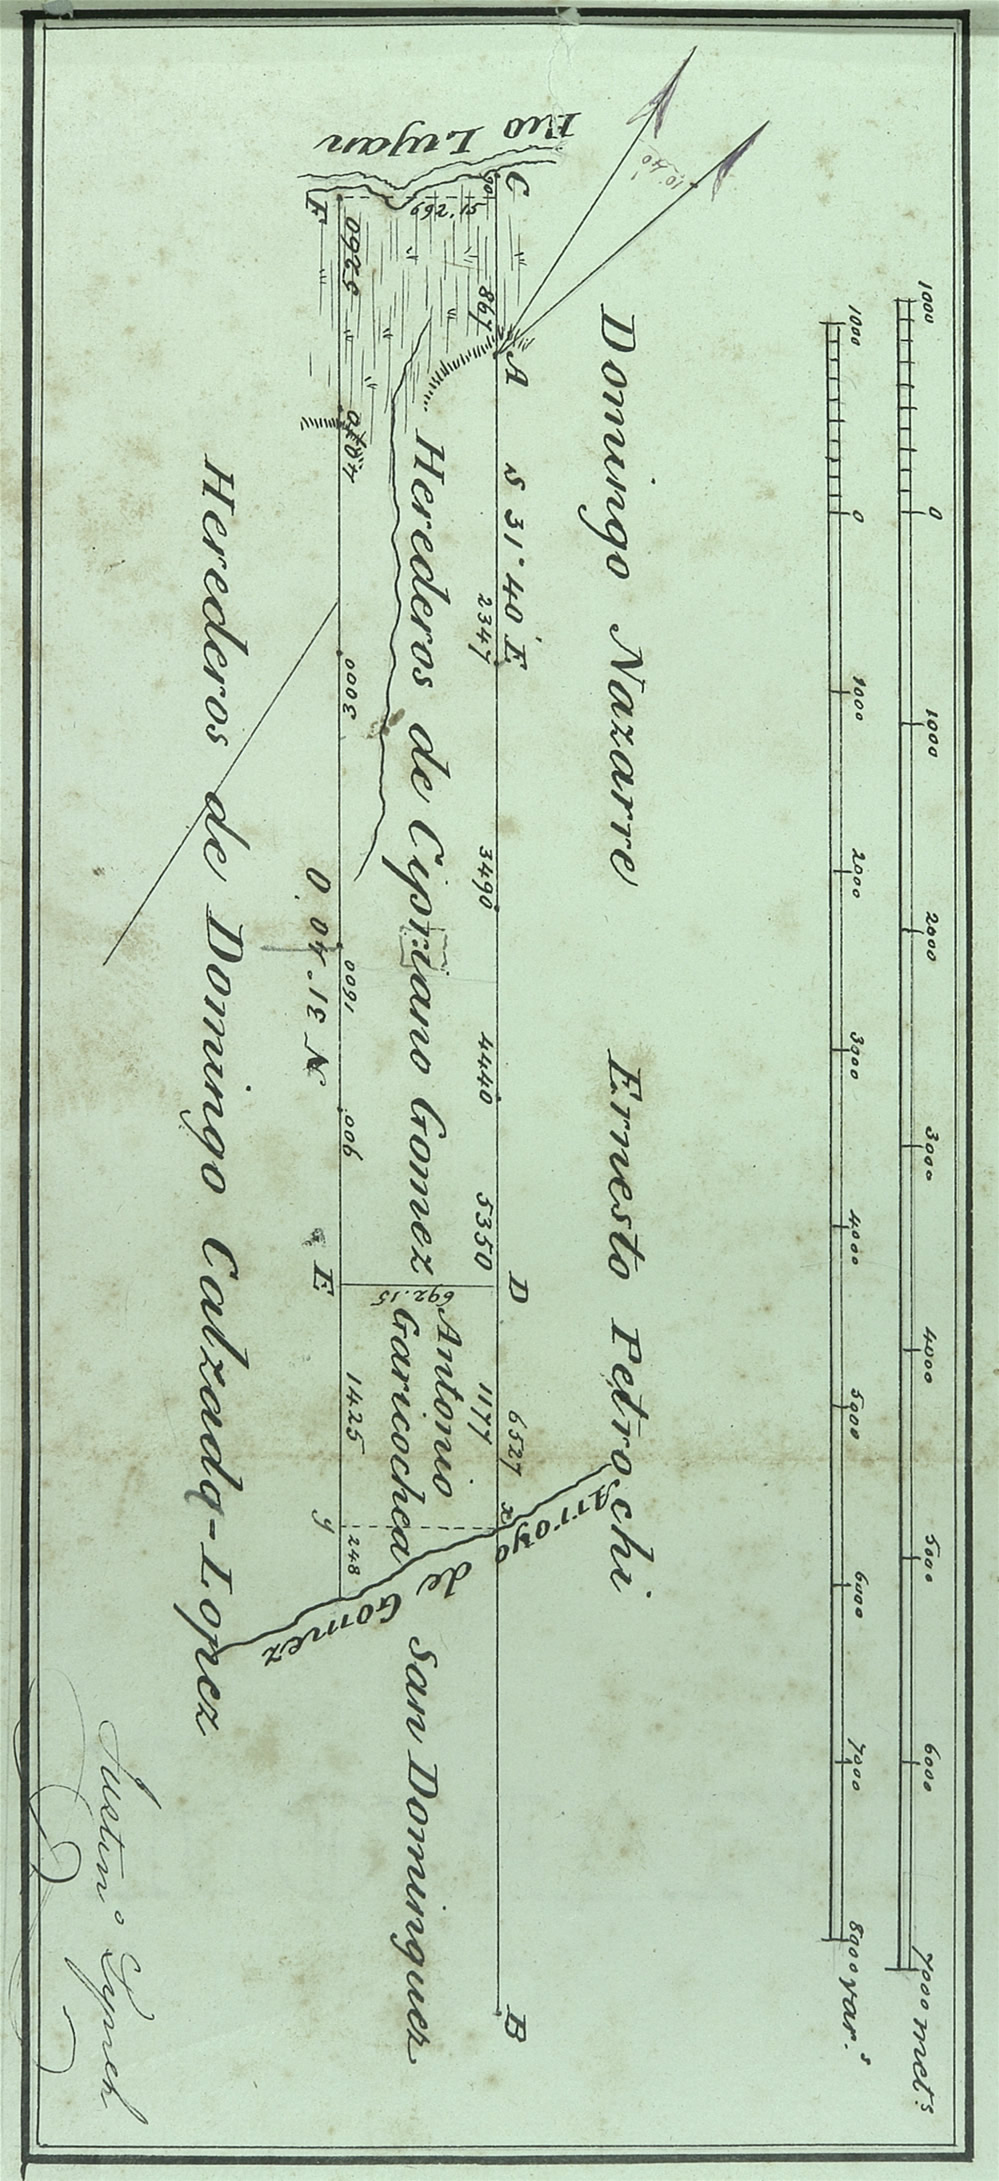 1000 0 1000 2000 3000 4000 5000 6000 7000 met.s
1000 0 1000 2000 3000 4000 5000 6000 7000 8000 var.s
10.° 40'
Domingo Nazarre
Ernesto Petrochi
C
A
S 31° 40' E
D
6527
x
B
90
867
2347
3490
4440
5350
1177
Rio Lujan
692.15
Herederos de Cipriano Gomez
692.15
Antonio
Garicochea
Arroyo de Gomez
San Dominguez
F
5260
4070
3000
1600
900
E
1425
y
248
N 31° 40' O
Herederos de Domingo Calzada-Lopez
Justin° Lynch